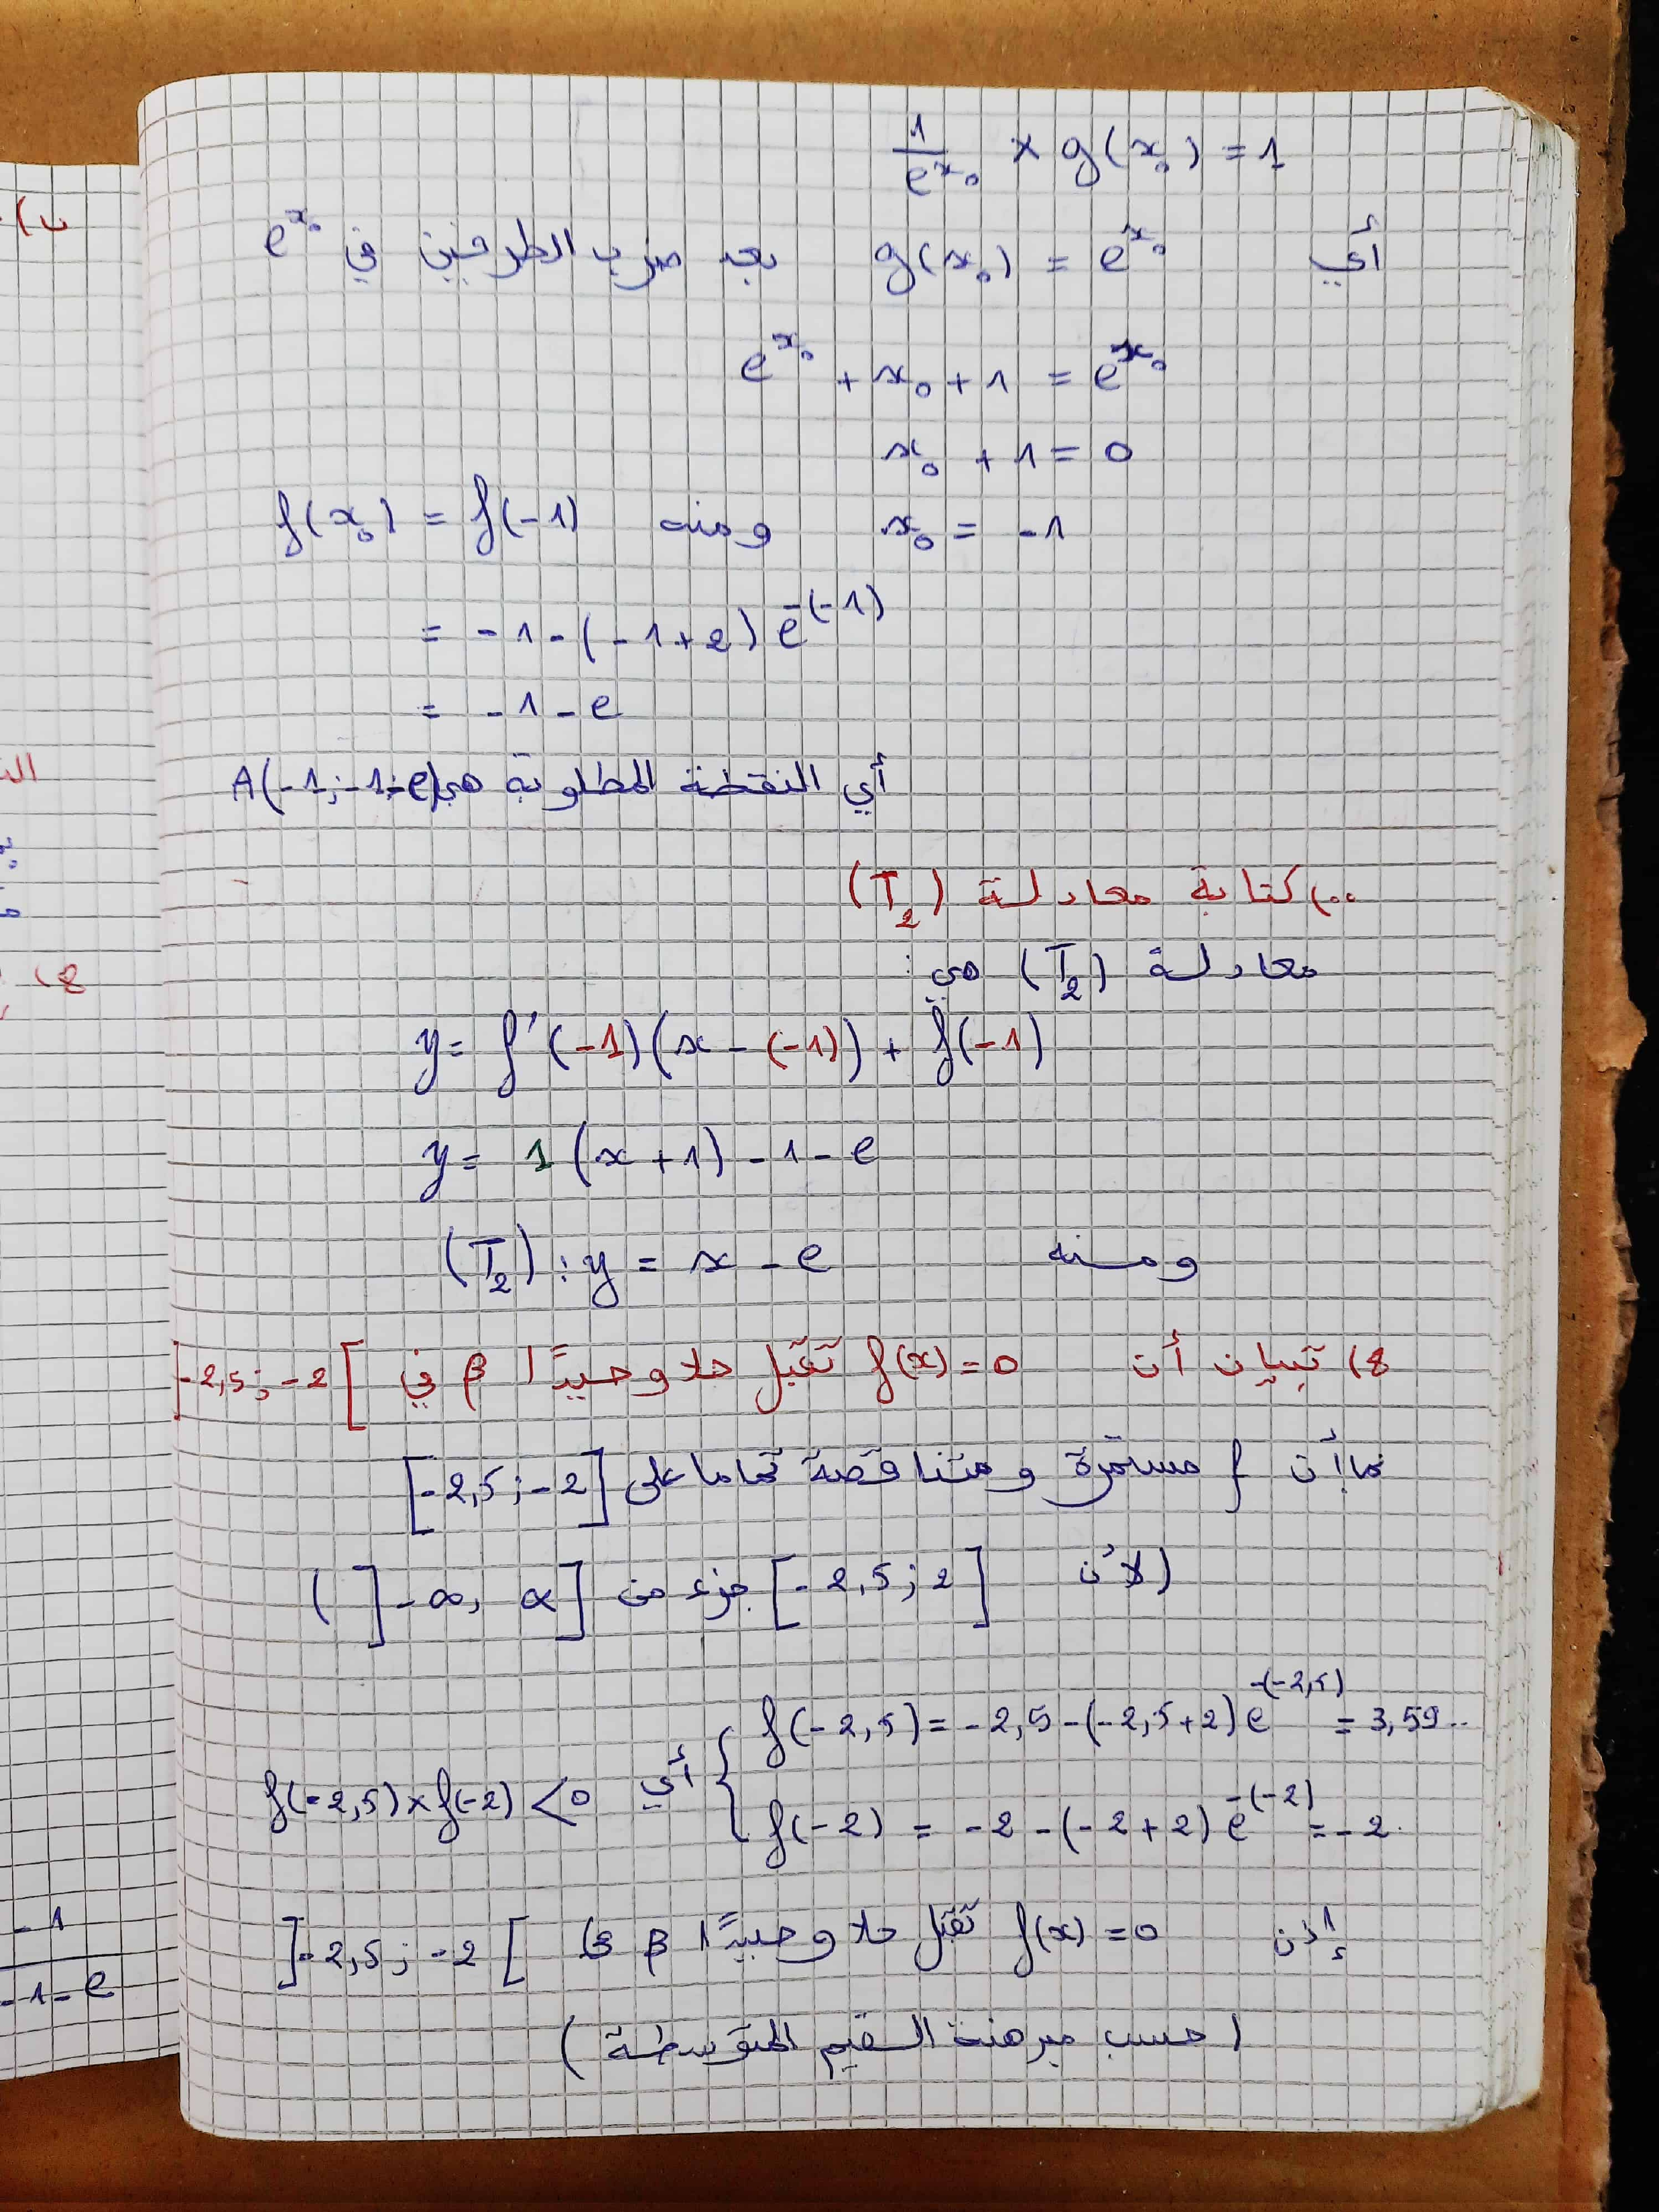 1/e^x₀ × g(x₀) = 1
أي g(x₀) = e^x₀ بعد ضرب الطرفين في e^x₀
e^x₀ + x₀ + 1 = e^x₀
x₀ + 1 = 0
x₀ = -1 ومنه f(x₀) = f(-1)
= -1 - (-1+2) e^-(-1)
= -1 - e
أي النقطة المطلوبة هي A(-1; -1-e)
•• ) كتابة معادلة (T₂)
معادلة (T₂) هي :
y = f'(-1)(x - (-1)) + f(-1)
y = 1 (x + 1) - 1 - e
ومنه (T₂) : y = x - e
8) تبيان أن f(x) = 0 تقبل حلا وحيدًا β في ]-2,5 ; -2[
بما أن f مستمرة و متناقصة تماما على [-2,5 ; -2]
(لأن [-2,5 ; 2] جزء من ]-∞, α] )
f(-2,5) = -2,5 - (-2,5+2) e^-(-2,5) = 3,59..
أي f(-2,5) × f(-2) < 0
f(-2) = -2 - (-2+2) e^-(-2) = -2
إذن f(x) = 0 تقبل حلا وحيدًا β في ]-2,5 ; -2[
(حسب مبرهنة القيم المتوسطة)
ب)
8)
-1
-1-e